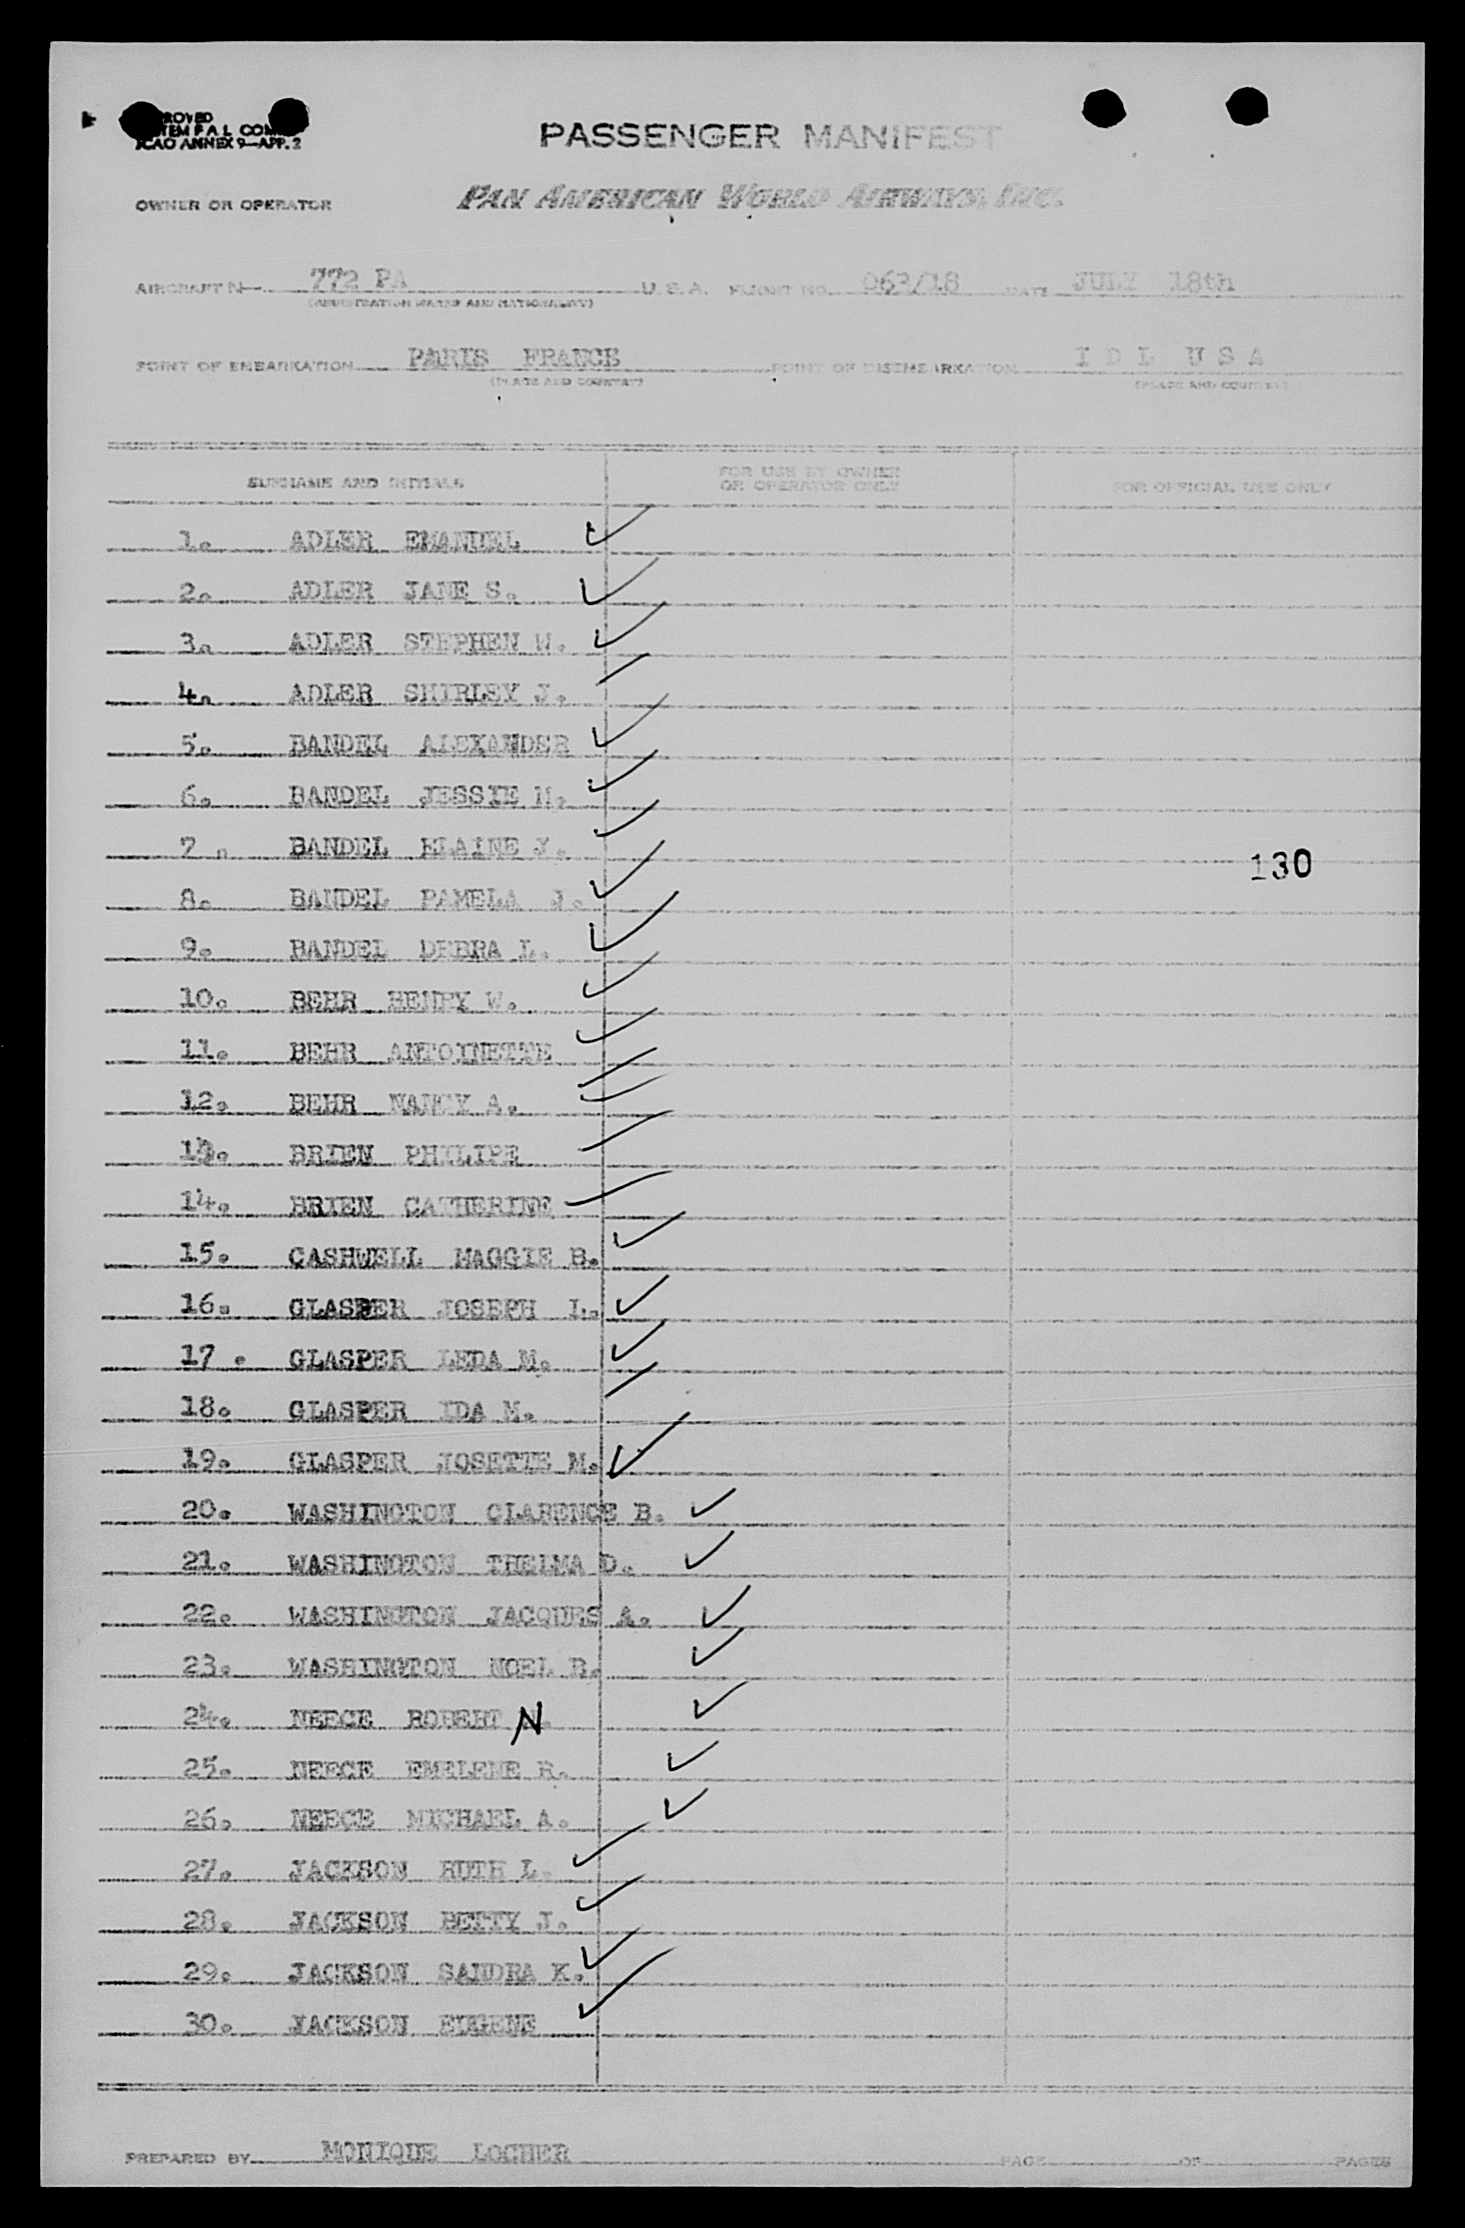 ROVED
TEM F A L COM
ICAO ANNEX 9—APP. 2
PASSENGER MANIFEST
OWNER OR OPERATOR PAN AMERICAN WORLD AIRWAYS, INC.
AIRCRAFT N— 772 PA U. S. A. FLIGHT NO. 063/18 DATE JULY 18th
(REGISTRATION MARKS AND NATIONALITY)
POINT OF EMBARKATION PARIS FRANCE POINT OF DISEMBARKATION I D L U S A
(PLACE AND COUNTRY) (PLACE AND COUNTRY)
SURNAME AND INITIALS FOR USE BY OWNER OR OPERATOR ONLY FOR OFFICIAL USE ONLY
1. ADLER EMANUEL
2. ADLER JANE S.
3. ADLER STEPHEN W.
4. ADLER SHIRLEY J.
5. BANDEL ALEXANDER
6. BANDEL JESSIE
7. BANDEL ELAINE
130
8. BANDEL PAMELA J.
9. BANDEL DEBRA L.
10. BEHR HENRY W.
11. BEHR ANTOINETTE
12. BEHR NANCY A.
13. BRIEN PHILIPE
14. BRIEN CATHERINE
15. CASHWELL MAGGIE B.
16. GLASPER JOSEPH L.
17. GLASPER LEDA M.
18. GLASPER IDA M.
19. GLASPER JOSETTE M.
20. WASHINGTON CLARENCE B.
21. WASHINGTON THELMA D.
22. WASHINGTON JACQUES A.
23. WASHINGTON NOEL
24. NEECE ROBERT N
25. NEECE EMELENE R.
26. NEECE MICHAEL A.
27. JACKSON RUTH L.
28. JACKSON BETTY J.
29. JACKSON SANDRA K.
30. JACKSON EUGENE
PREPARED BY MONIQUE LOCHER PAGE OF PAGES